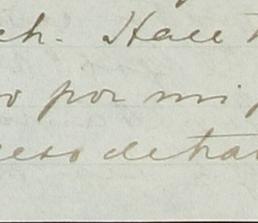 ch. Hace
o por mi
eso de tra